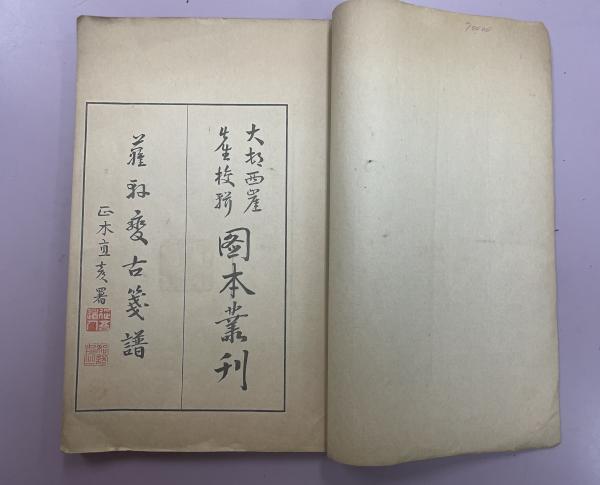 大村西崖
先生校輯
圖本叢刊
蘿軒變古箋譜
正木直彦署
70000